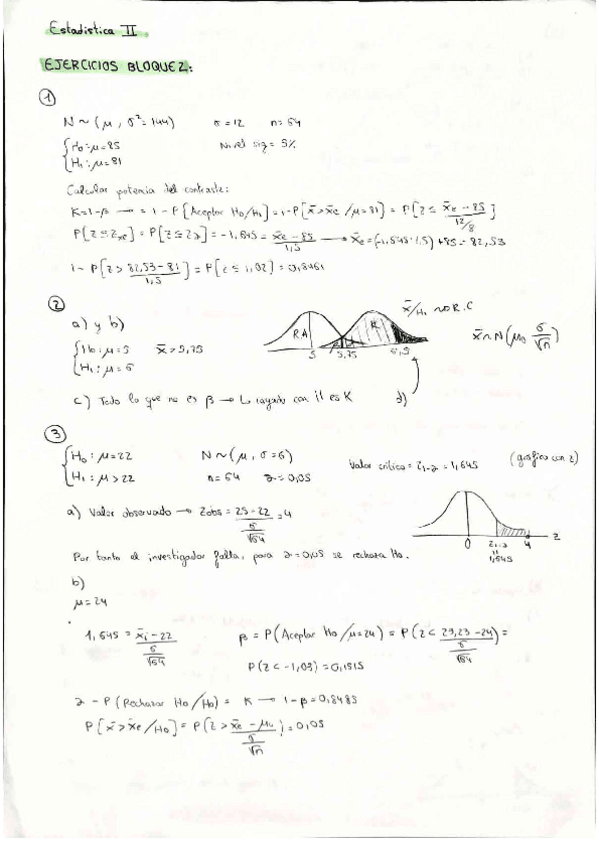 Estadística II
EJERCICIOS BLOQUE 2:
1
N ~ (μ, σ²=144) σ=12 n=64
{H₀: μ=85 Nivel sig = 5%
{H₁: μ=81
Calcular potencia del contraste:
K=1-β → = 1 - P[Aceptar H₀/H₁] = 1-P[x̄>x̄c /μ=81] = P[z ≤ x̄c - 85 / 12/8]
P[z≤zxc] = P[z≤zα] = -1,645 = x̄c - 85 / 1,5 → x̄c = (-1,645·1.5) +85 = 82,53
1 - P[z > 82,53-81 / 1,5] = P[z ≤ 1,02] = 0,8461
2
a) y b)
{H₀: μ=5 x̄ > 5,75
{H₁: μ=6
R.A K
5 5,75 6,5
x̄/H₁ ~ R.C
x̄ ~ N(μ₀ σ/√n)
c) Todo lo que no es β → L rayado con il es K d)
3
{H₀: μ=22 N ~ (μ, σ=6)
{H₁: μ>22 n=64 α=0,05
Valor crítico = Z1-α = 1,645 (gráfico con z)
a) Valor observado → Zobs = 25-22 / 6/√64 = 4
0 Z1-α 4 z
1,645
Por tanto el investigador falla, para α=0,05 se rechaza H₀.
b)
μ=24
1,645 = x̄i - 22 / 6/√64 β = P(Aceptar H₀/μ=24) = P(z < 23,23-24 / 6/√64) =
P(z < -1,03) = 0,1515
α - P(Rechazar H₀/H₀) = K → 1-β = 0,8485
P[x̄ > x̄c/H₀] = P(z > x̄c - μ₀ / σ/√n) = 0,05